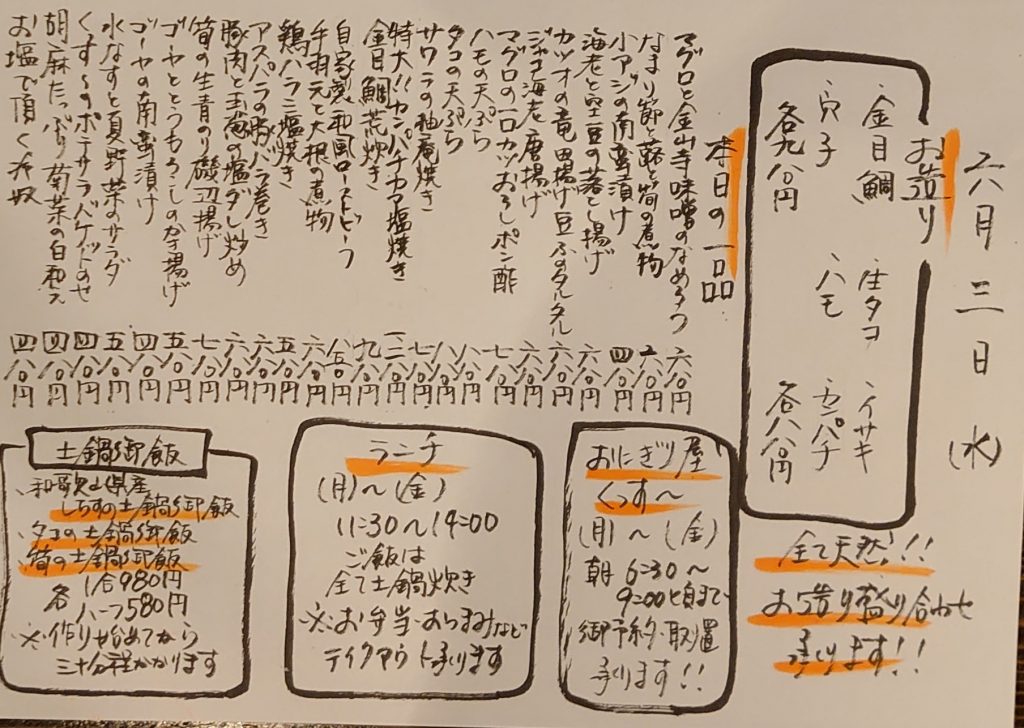 六月三日(水)
お造り
・金目鯛 ・生タコ ・イサキ
・穴子 ・ハモ ・カンパチ
各九八〇円 各八八〇円
全て天然!!
お造り盛り合わせ
承ります!!
本日の一品
マグロと金山寺味噌のなめろう 六八〇円
なまり節と蕗と筍の煮物 六八〇円
小アジの南蛮漬け 四八〇円
海老と空豆の落とし揚げ 六八〇円
カツオの竜田揚げ豆ふのタルタル 六八〇円
ジャコ海老唐揚げ 六八〇円
マグロの一口カツおろしポン酢 七八〇円
ハモの天ぷら 八八〇円
タコの天ぷら 七八〇円
サワラの柚庵焼き 七八〇円
特大!!カンパチカマ塩焼き
金目鯛荒炊き 九八〇円
自家製和風ローストビーフ
手羽元と大根の煮物 六八〇円
鶏ハラミ塩焼き 五八〇円
アスパラの豚バラ巻き 六八〇円
豚肉と玉葱の塩ダレ炒め 六八〇円
筍の生青のり磯辺揚げ 七八〇円
ゴーヤととうもろこしのかき揚げ 五八〇円
ゴーヤの南蛮漬け 四八〇円
水なすと夏野菜のサラダ 五八〇円
くっす〜のポテサラバケットのせ 四八〇円
胡麻たっぷり菊菜の白和え 四八〇円
お塩で頂く冷奴 四八〇円
おにぎり屋
くっす〜
(月)〜(金)
朝 6:30〜
9:00頃まで
御予約・取置
承ります!!
ランチ
(月)〜(金)
11:30〜14:00
ご飯は
全て土鍋炊き
※お弁当・おつまみなど
テイクアウト承ります
土鍋御飯
・和歌山県産
しらすの土鍋御飯
・タコの土鍋御飯
・筍の土鍋御飯
各 1合980円
ハーフ580円
※作り始めてから
三十分程かかります